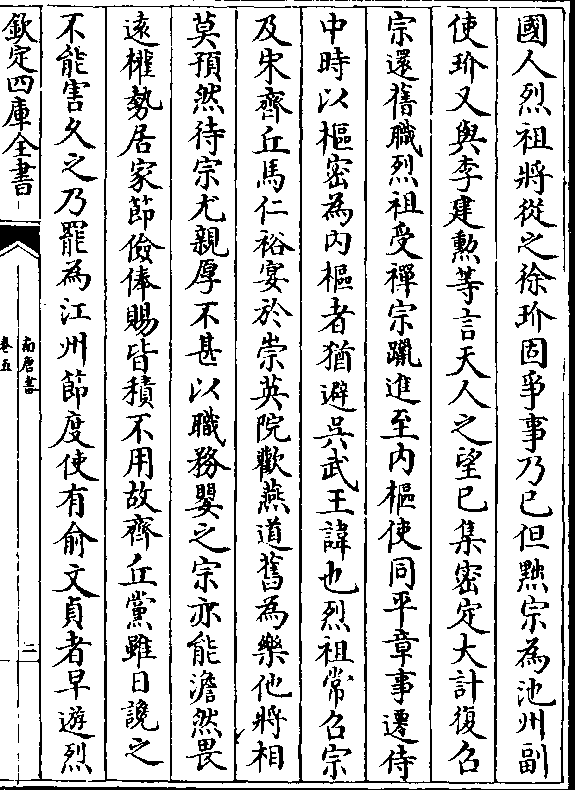 國人烈祖將從之徐玠固爭事乃已但黜宗為池州副
使玠又與李建勲等言天人之望已集宻定大計復召
宗還舊職烈祖受禪宗躐進至内樞使同平章事遷侍
中時以樞宻為内樞者猶避吳武王諱也烈祖常召宗
及宋齊丘馬仁裕宴於崇英院歡燕道舊為樂他將相
莫預然待宗尤親厚不甚以職務嬰之宗亦能澹然畏
逺權勢居家節儉俸賜皆積不用故齊丘黨雖日讒之
不能害久之乃罷為江州節度使有俞文貞者早遊烈
欽定四庫全書
南唐書
卷五
二